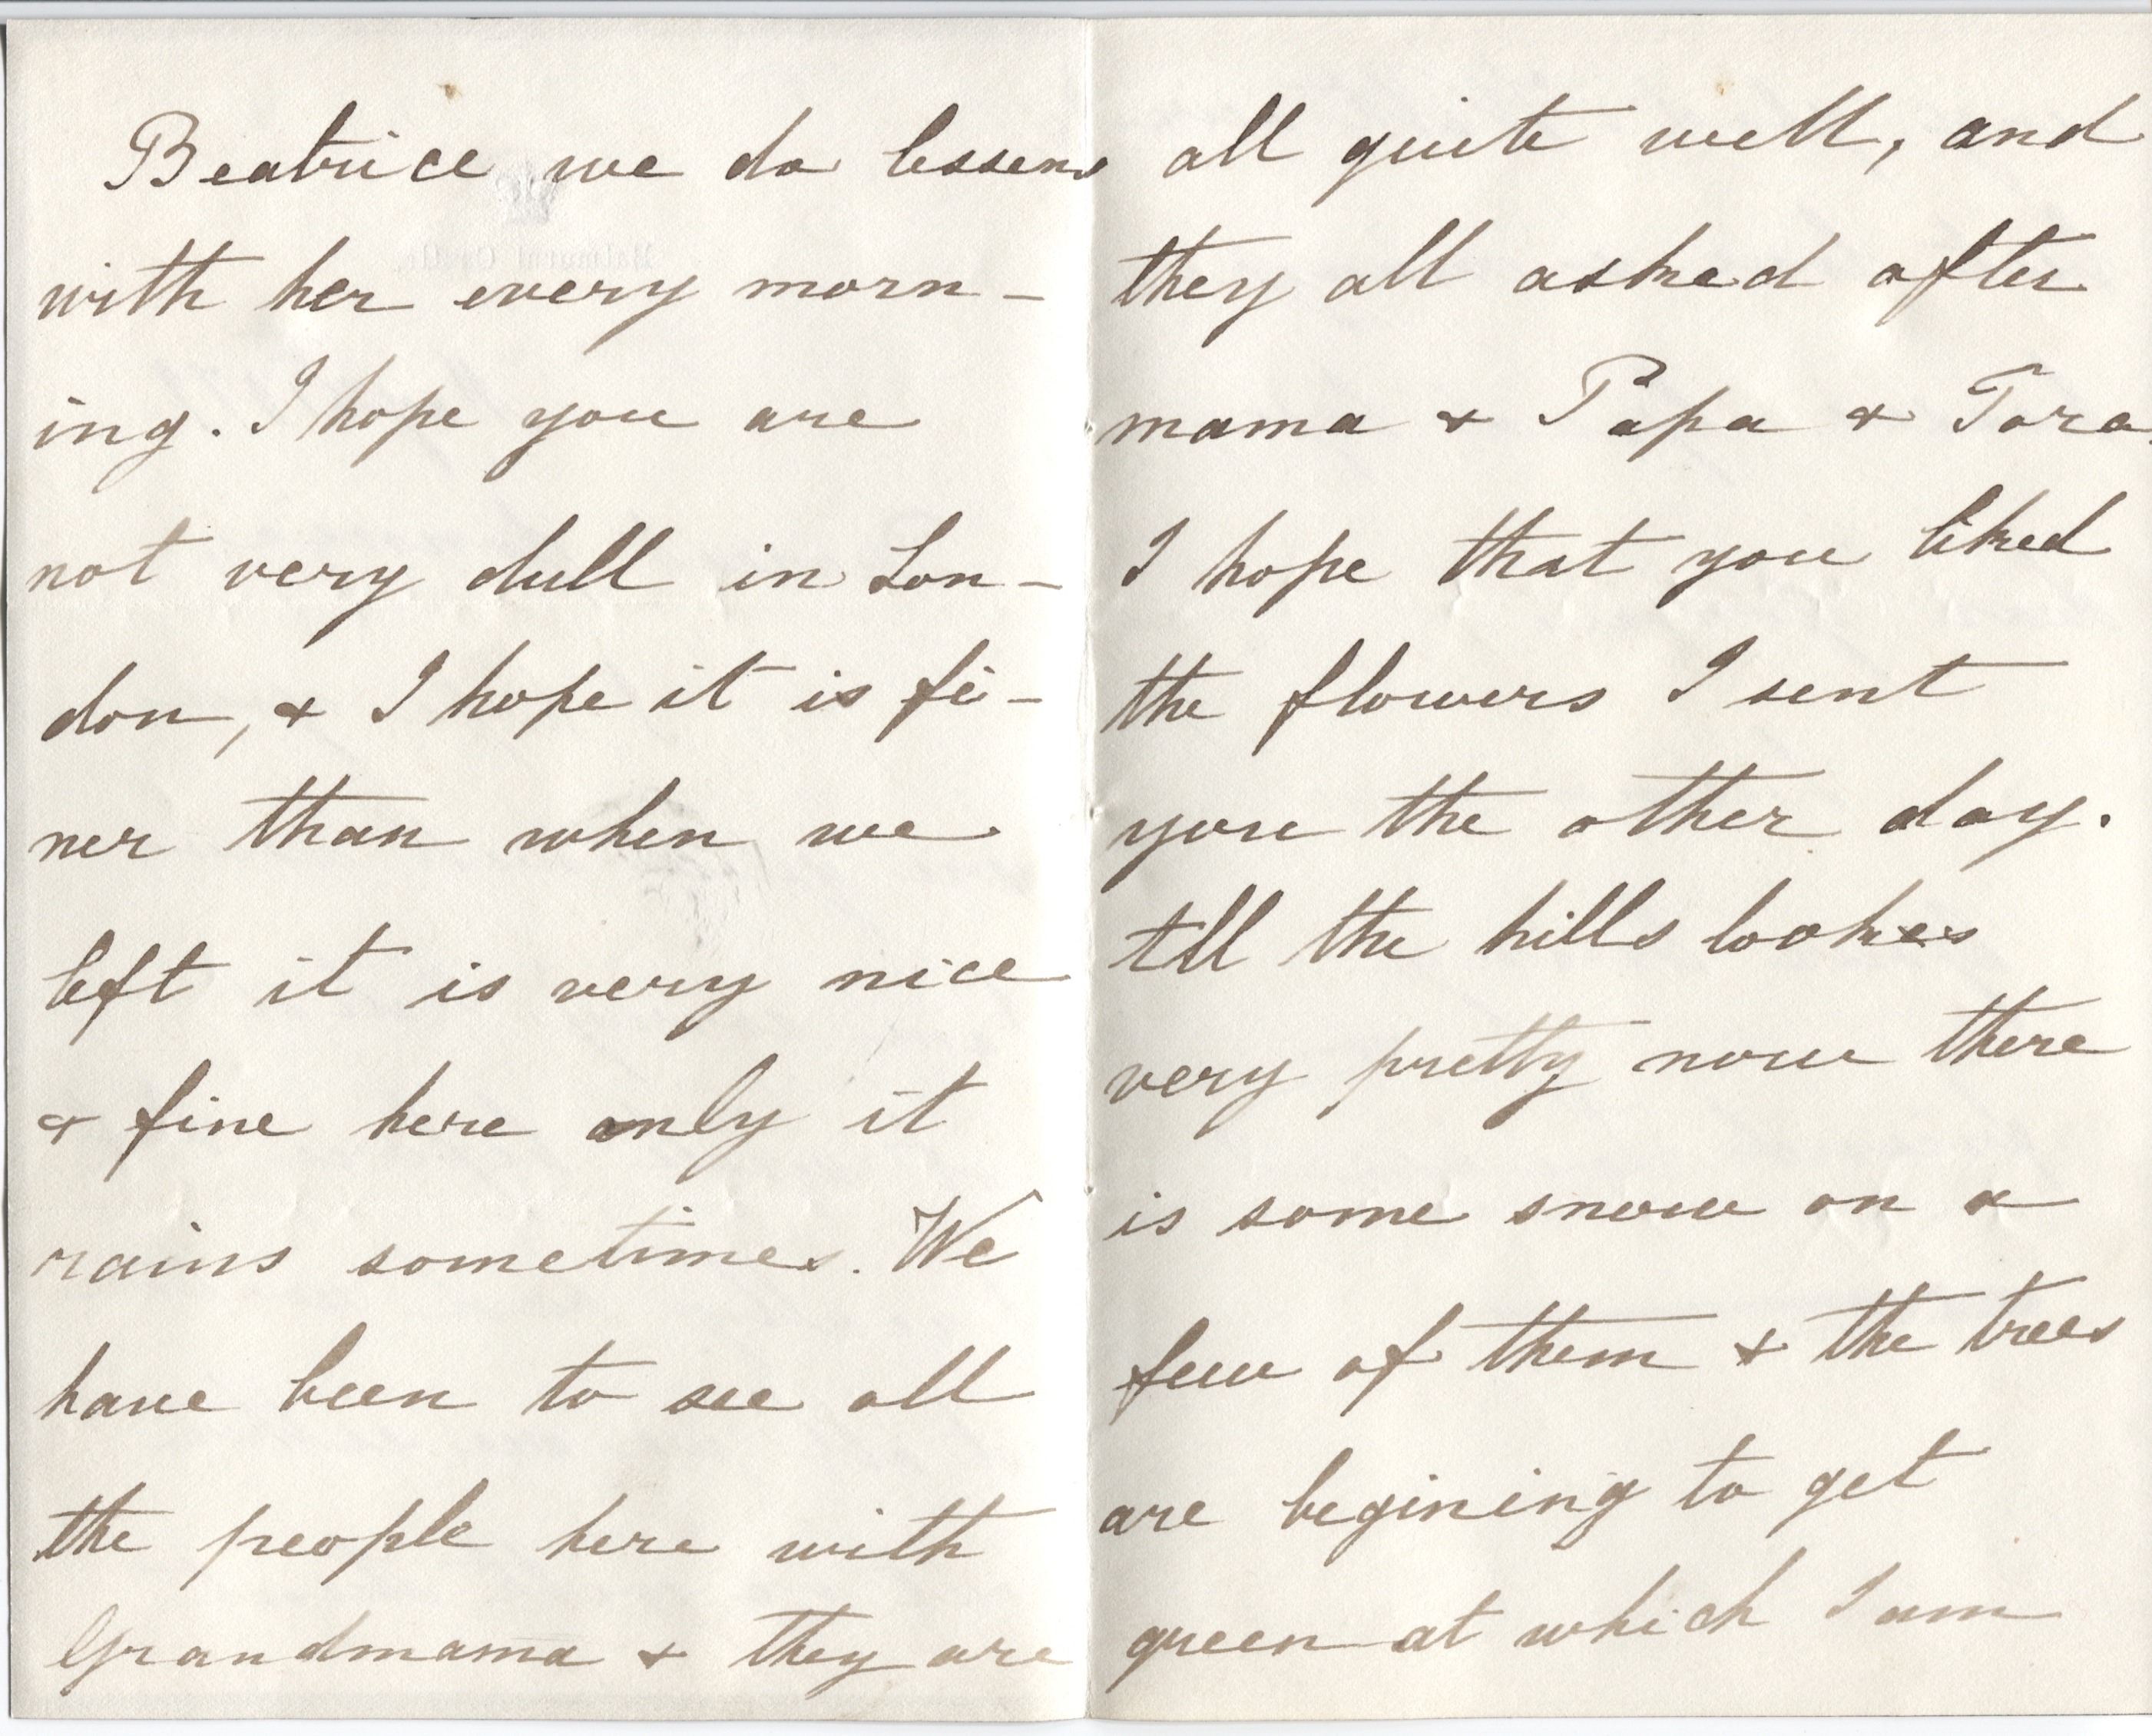 Beatrice we do lessens
with her every morn-
ing. I hope you are
not very dull in Lon-
don, & I hope it is fi-
ner than when we
left it is very nice
& fine here only it
rains sometimes. We
have been to see all
the people here with
Grandmama & they are
all quite well, and
they all asked after
mama & Papa & Tora.
I hope that you liked
the flowers I sent
you the other day.
All the hills lookes
very pretty now there
is some snow on a
few of them & the trees
are begining to get
green at which I am